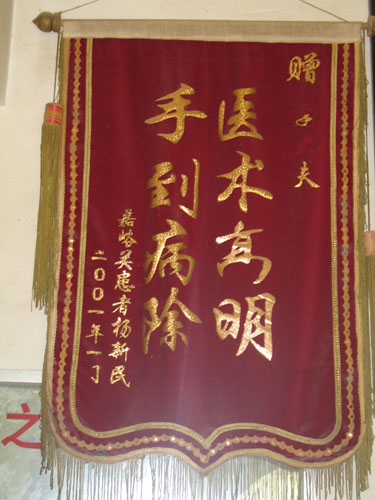 赠 夫
医术高明
手到病除
嘉峪关患者杨新民
二〇〇一年一
之